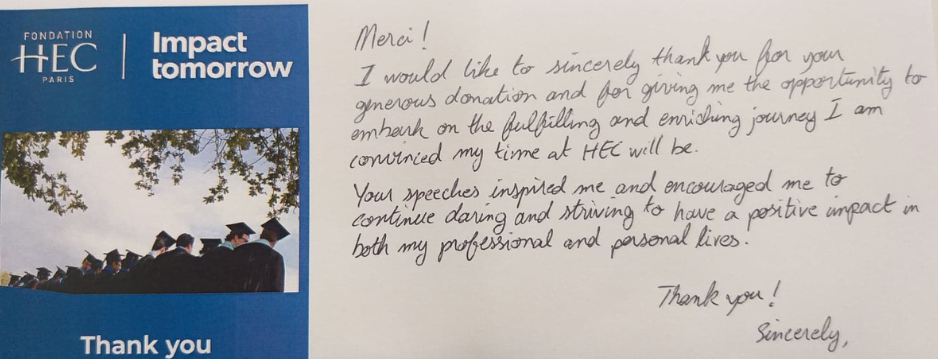 FONDATION
HEC
PARIS
Impact
tomorrow
Thank you
Merci!
I would like to sincerely thank you for your
generous donation and for giving me the opportunity to
embark on the fulfilling and enriching journey I am
convinced my time at HEC will be.
Your speeches inspired me and encouraged me to
continue daring and striving to have a positive impact in
both my professional and personal lives.
Thank you!
Sincerely,